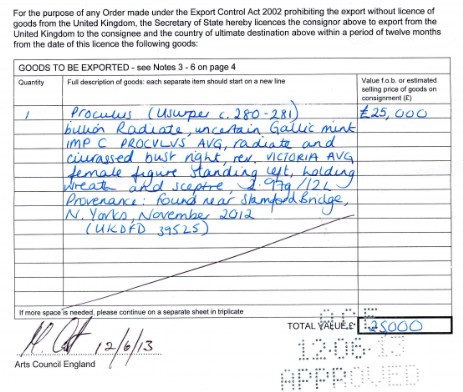 For the purpose of any Order made under the Export Control Act 2002 prohibiting the export without licence of
goods from the United Kingdom, the Secretary of State hereby licences the consignor above to export from the
United Kingdom to the consignee and the country of ultimate destination above within a period of twelve months
from the date of this licence the following goods:
GOODS TO BE EXPORTED - see Notes 3 - 6 on page 4
Quantity Full description of goods: each separate item should start on a new line Value f.o.b. or estimated
selling price of goods on
consignment (£)
1 Proculus (Usurper c. 280-281) £25,000
billon Radiate, uncertain Gallic mint
IMP C PROCVLVS AVG, radiate and
cuirassed bust right, rev. VICTORIA AVG
female figure standing left, holding
wreath and sceptre, 2.97g/12h
Provenance: Found near Stamford Bridge,
N. Yorks, November 2012
(UKDFD 39525)
If more space is needed, please continue on a separate sheet in triplicate
TOTAL VALUE £ 25000
12/6/13
Arts Council England
ACE
12.06.13
APPROVED